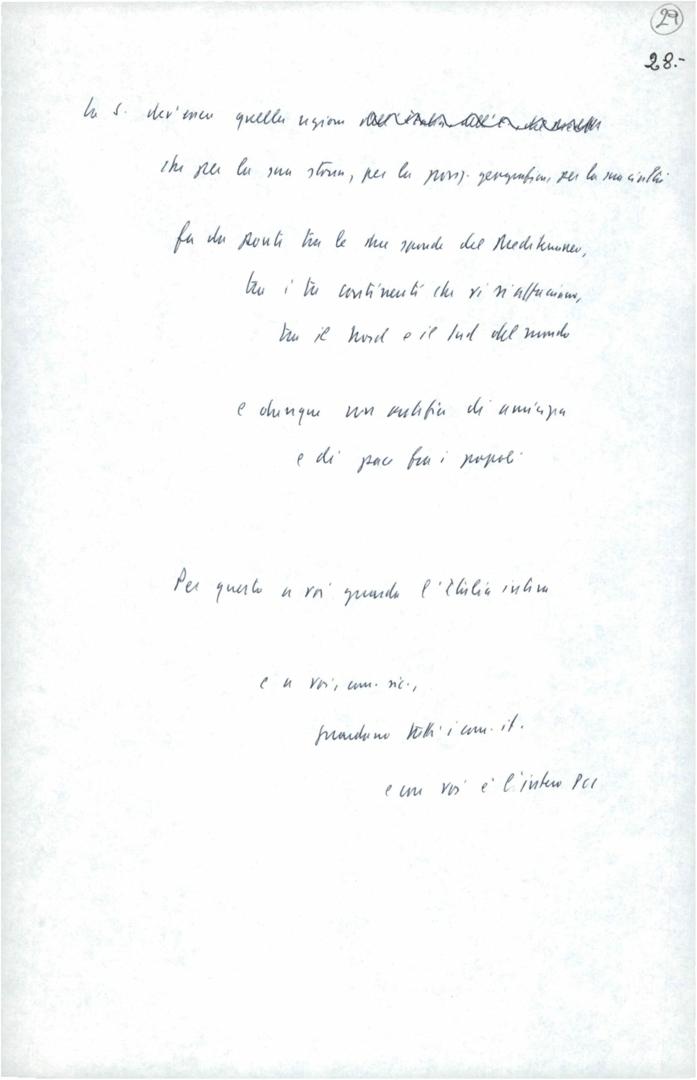 29
28.-
la S. divenga quella regione
che per la sua storia, per la posiz. geografica, per la sua civiltà
fa da ponte tra le due sponde del Mediterraneo,
tra i tre continenti che vi si affacciano,
tra il Nord e il Sud del mondo
e dunque un artefice di amicizia
e di pace fra i popoli
Per questo a voi guarda l'Italia intera
e a voi, com. sic.,
guardano tutti i com. it.
e con voi è l'intero PCI